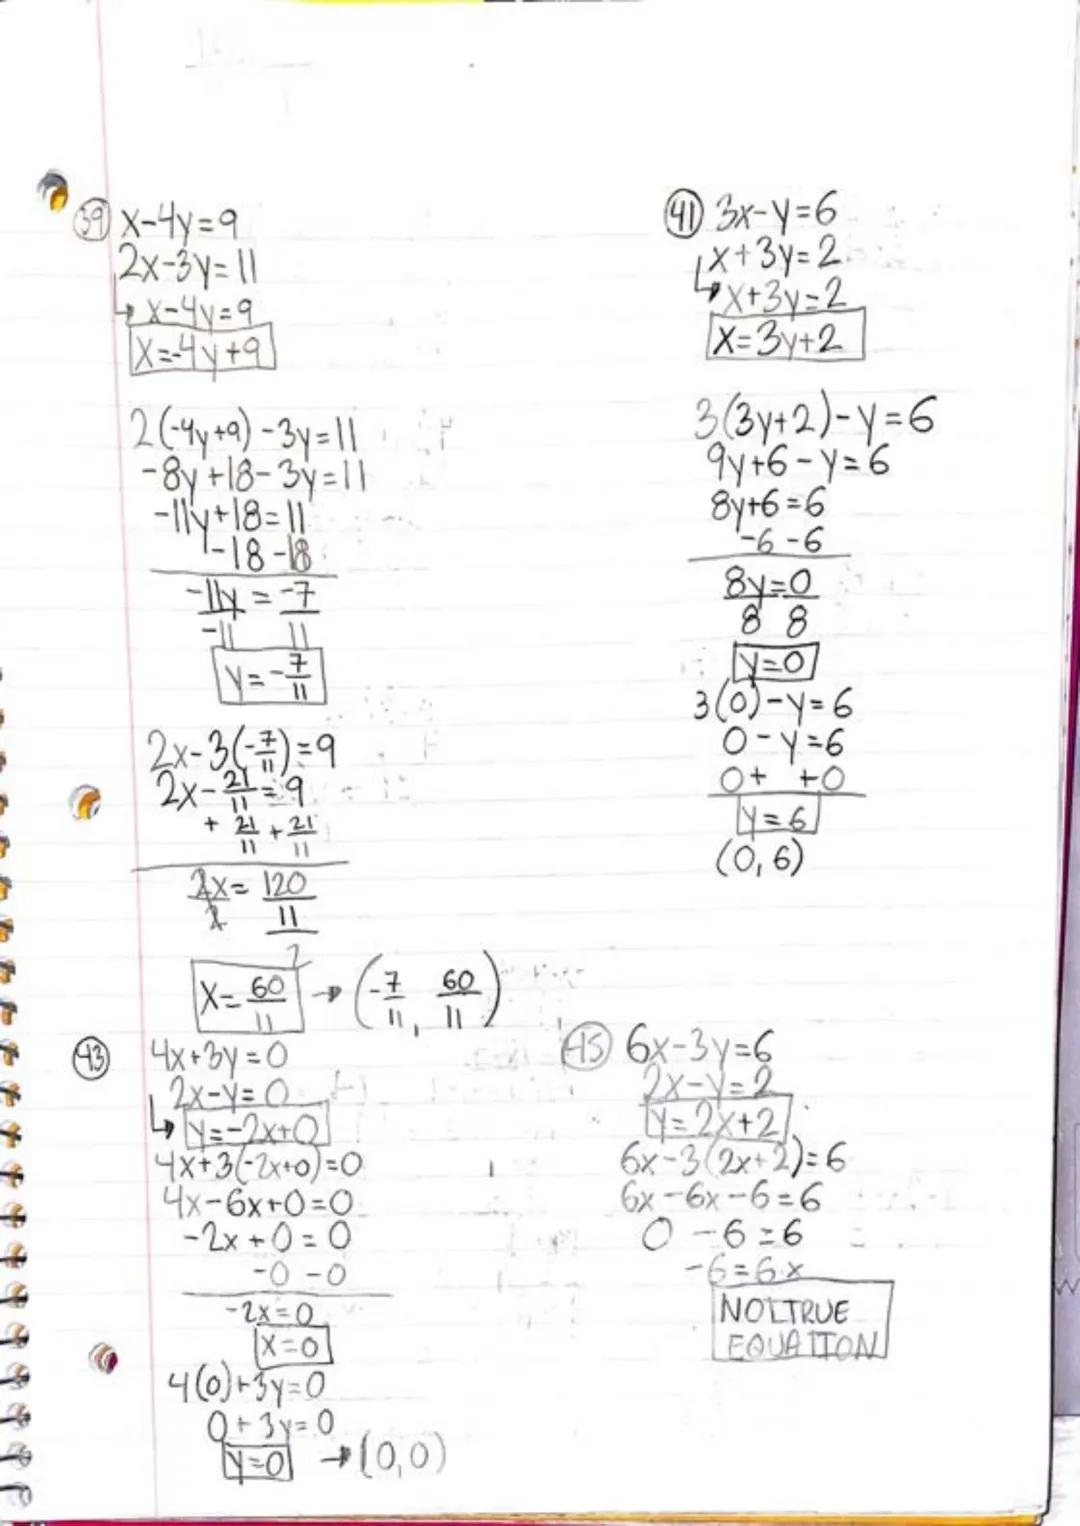 39 x-4y=9
2x-3y=11
↳ x-4y=9
x=-4y+9
2(-4y+9)-3y=11
-8y+18-3y=11
-11y+18=11
-18 -18
-11y = -7
-11 11
y = -7/11
2x-3(-7/11)=9
2x-21/11=9
+ 21/11 + 21/11
2x = 120/11
2 2
x = 60/11 → (-7/11, 60/11)
41 3x-y=6
x+3y=2
↳ x+3y=2
x=3y+2
3(3y+2)-y=6
9y+6-y=6
8y+6=6
-6 -6
8y=0
8 8
y=0
3(0)-y=6
0-y=6
0+ +0
y=6
(0,6)
43 4x+3y=0
2x-y=0
↳ y=-2x+0
4x+3(-2x+0)=0
4x-6x+0=0
-2x+0=0
-0 -0
-2x=0
x=0
4(0)+3y=0
0+3y=0
y=0 → (0,0)
45 6x-3y=6
2x-y=2
y=2x+2
6x-3(2x+2)=6
6x-6x-6=6
0 -6=6
-6=6 x
NOT TRUE
EQUATION